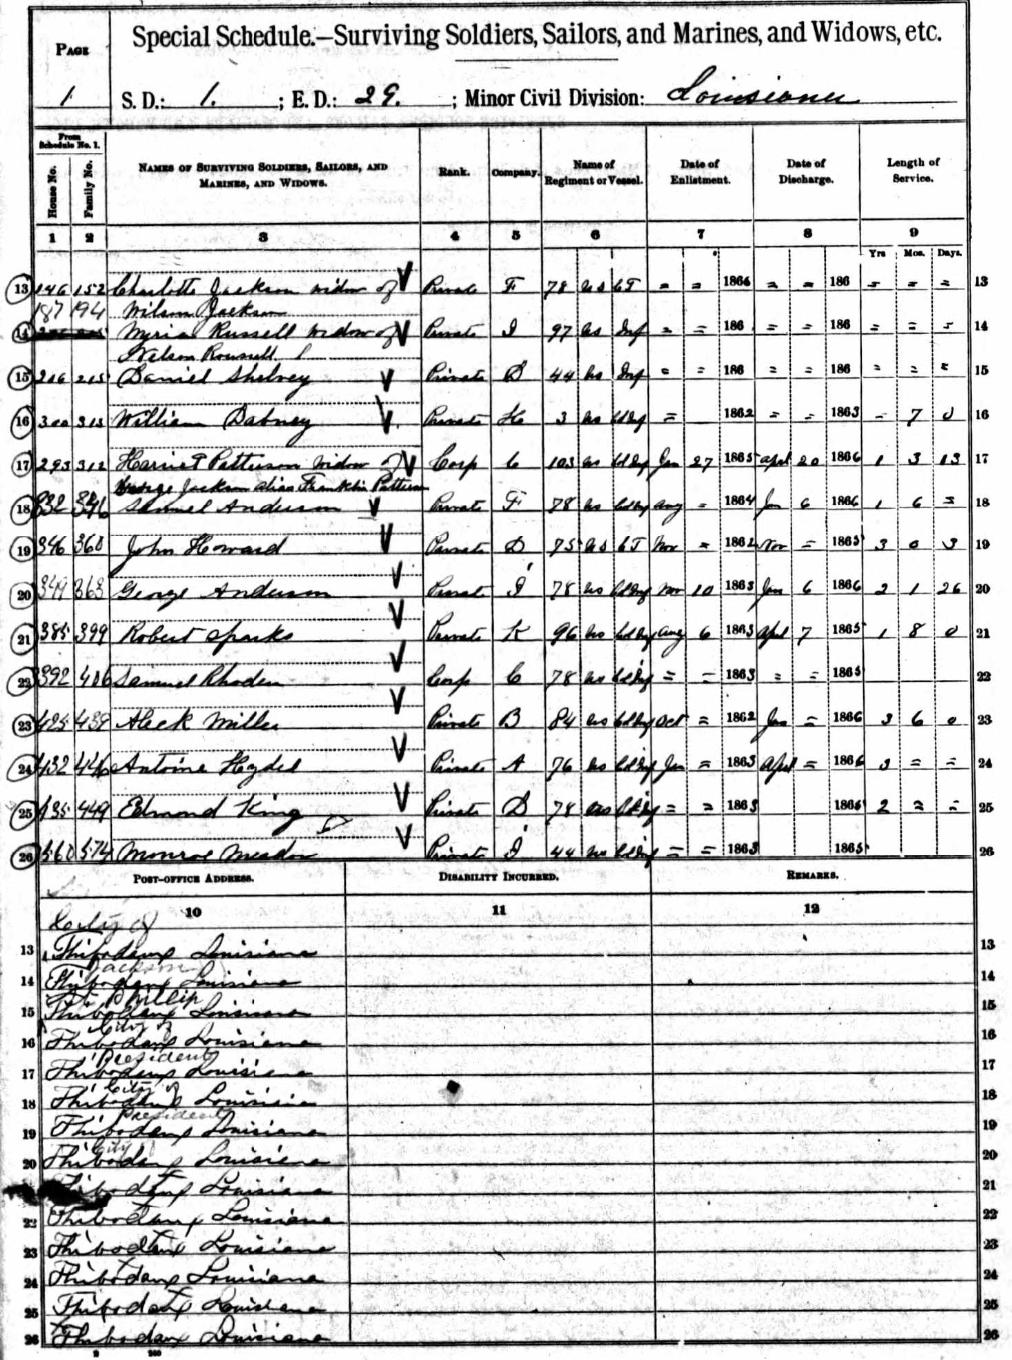 PAGE
1
Special Schedule.—Surviving Soldiers, Sailors, and Marines, and Widows, etc.
S. D.: 1. ; E. D.: 29. ; Minor Civil Division: Louisiana
From Schedule No. 1.
House No. Family No. NAMES OF SURVIVING SOLDIERS, SAILORS, AND MARINES, AND WIDOWS. Rank. Company. Name of Regiment or Vessel. Date of Enlistment. Date of Discharge. Length of Service.
1 2 3 4 5 6 7 8 9
Yrs Mos. Days.
13 146 152 Charlotte Jackson widow of Private F 78 US CT = = 1864 = = 186 = = = 13
187 194 Wilson Jackson
14 Myria Russell widow of Private I 97 US Inf = = 186 = = 186 = = = 14
Nelson Roussell
15 206 215 Daniel Shelvey Private D 44 US Inf = = 186 = = 186 = = = 15
16 300 313 William Dabney Private K 3 US Cld Inf = 1862 = = 1863 - 7 0 16
17 293 312 Harriet Patterson widow of Corp C 103 US Cld Inf Jan 27 1865 April 20 1866 1 3 13 17
George Jackson alias Franklin Patterson
18 332 346 Samuel Anderson Private F 78 US Cld Inf Aug - 1864 Jan 6 1866 1 6 = 18
19 346 360 John Howard Private D 75 US CT Nov = 1862 Nov = 1865 3 0 3 19
20 349 363 George Anderson Privat I 78 US Cld Inf Nov 10 1863 Jan 6 1866 2 1 26 20
21 385 399 Robert Sparks Private K 96 US Cld Inf Aug 6 1863 April 7 1865 1 8 0 21
22 392 406 Samuel Rhoden Corp C 78 US Cld Inf = = 1863 = = 1865 22
23 425 439 Aleck Miller Private B 84 US Cld Inf Oct = 1862 Jan = 1866 3 6 0 23
24 432 446 Antoine Heydel Private A 76 US Cld Inf Jan = 1863 April = 1866 3 = = 24
25 435 449 Edmond King Private D 78 US Cld Inf = = 1863 1866 2 = = 25
26 560 574 Monroe Meador Private I 44 US Cld Inf = = 1863 1865 26
POST-OFFICE ADDRESS. DISABILITY INCURRED. REMARKS.
10 11 12
City of
13 Thibodaux Louisiana 13
Jackson
14 Thibodaux Louisiana 14
St Phillip
15 Thibodaux Louisiana 15
City of
16 Thibodaux Louisiana 16
President
17 Thibodaux Louisiana 17
City of
18 Thibodaux Louisiana 18
President
19 Thibodaux Louisiana 19
City
20 Thibodaux Louisiana 20
Thibodaux Louisiana 21
22 Thibodaux Louisiana 22
23 Thibodaux Louisiana 23
24 Thibodaux Louisiana 24
25 Thibodaux Louisiana 25
26 Thibodaux Louisiana 26